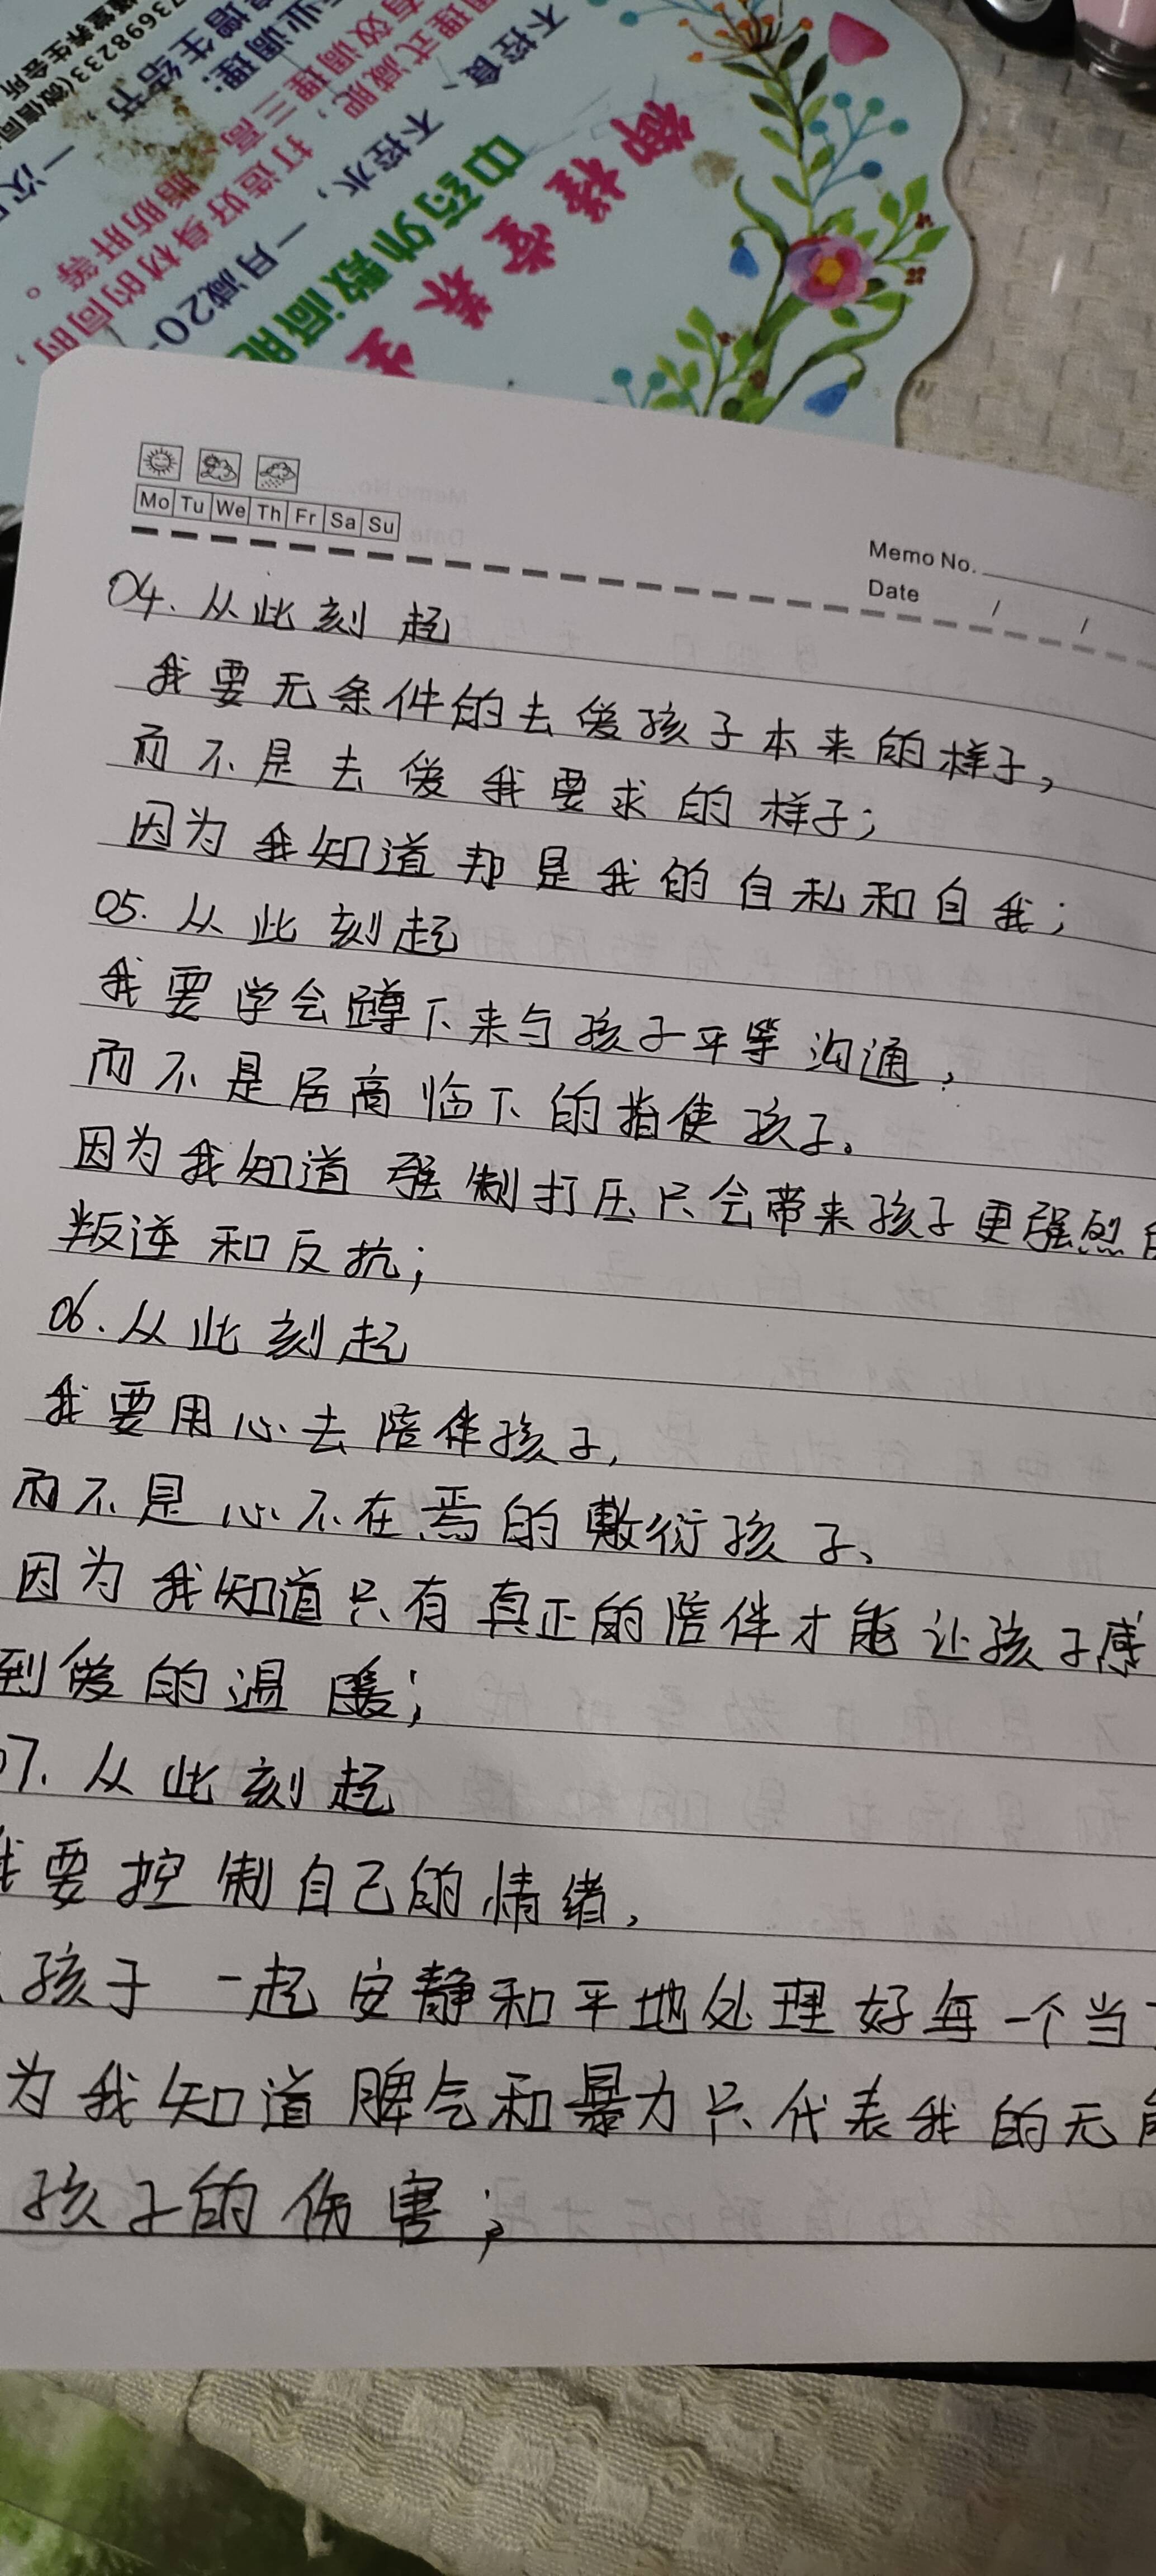 御禧堂养生
中药外敷减肥
不控食、不控水,一月减20-
调理式减肥,打造好身材的同时,
有效调理三高、脂肪肝等。
业调理:
增生结节,一次
73698233(微信同
养生会所
Mo Tu We Th Fr Sa Su
Memo No.
Date / /
04. 从此刻起
我要无条件的去爱孩子本来的样子,
而不是去爱我要求的样子;
因为我知道那是我的自私和自我;
05. 从此刻起
我要学会蹲下来与孩子平等沟通,
而不是居高临下的指使孩子。
因为我知道强制打压只会带来孩子更强烈的
叛逆和反抗;
06. 从此刻起
我要用心去陪伴孩子,
而不是心不在焉的敷衍孩子、
因为我知道只有真正的陪伴才能让孩子感
到爱的温暖;
07. 从此刻起
我要控制自己的情绪,
孩子一起安静和平地处理好每一个当下
为我知道脾气和暴力只代表我的无能
孩子的伤害;